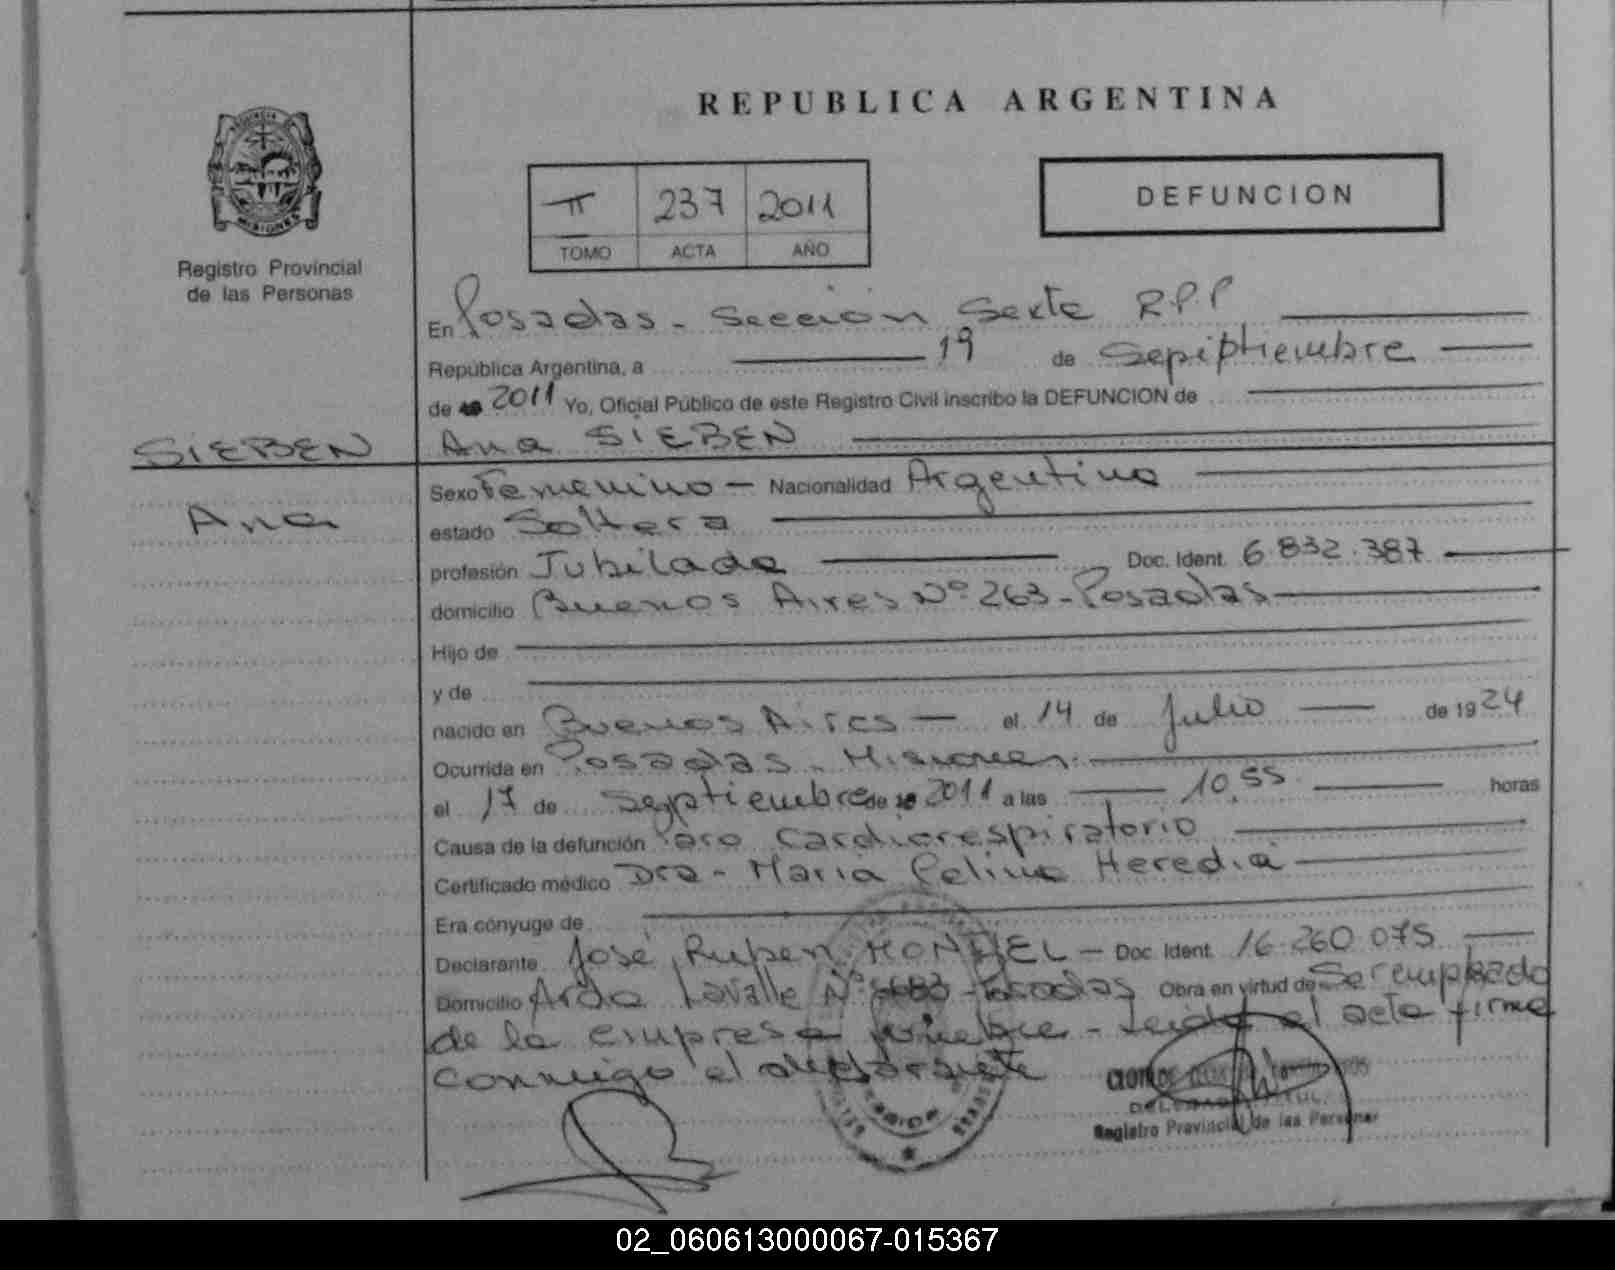 REPUBLICA ARGENTINA
PROVINCIA DE
MISIONES
Registro Provincial
de las Personas
II 237 2011
TOMO ACTA AÑO
DEFUNCION
En Posadas - Sección Sexta RPP
República Argentina, a 19 de Sepiptiembre
de 2011 Yo, Oficial Público de este Registro Civil inscribo la DEFUNCION de
SIEBEN
Ana
Ana SIEBEN
Sexo Femenino - Nacionalidad Argentina
estado Soltera
profesión Jubilada Doc. Ident. 6.832.387
domicilio Buenos Aires Nº 263 - Posadas
Hijo de
y de
nacido en Buenos Aires - el 14 de Julio de 1924
Ocurrida en Posadas - Misiones.
el 17 de Septiembre de 2011 a las 10,55 horas
Causa de la defunción Paro Cardiorespiratorio
Certificado médico Dra - Maria Celina Heredia
Era cónyuge de
Declarante José Ruben MONDEL - Doc. Ident. 16.260.075
Domicilio Avda Lavalle Nº - Posadas Obra en virtud de Ser empleado
de la empresa funebre - Leida el acta firma
conmigo el declarante
Registro Provincial de las Personas
02_060613000067-015367